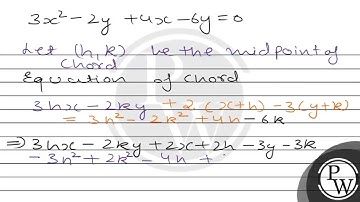 3x² - 2y + 4x - 6y = 0
Let (h, k) be the midpoint of
chord
Equation of chord
3hx - 2ky + 2(x+h) - 3(y+k)
= 3h² - 2k² + 4h - 6k
⇒ 3hx - 2ky + 2x + 2h - 3y - 3k
- 3h² + 2k² - 4h +
PW